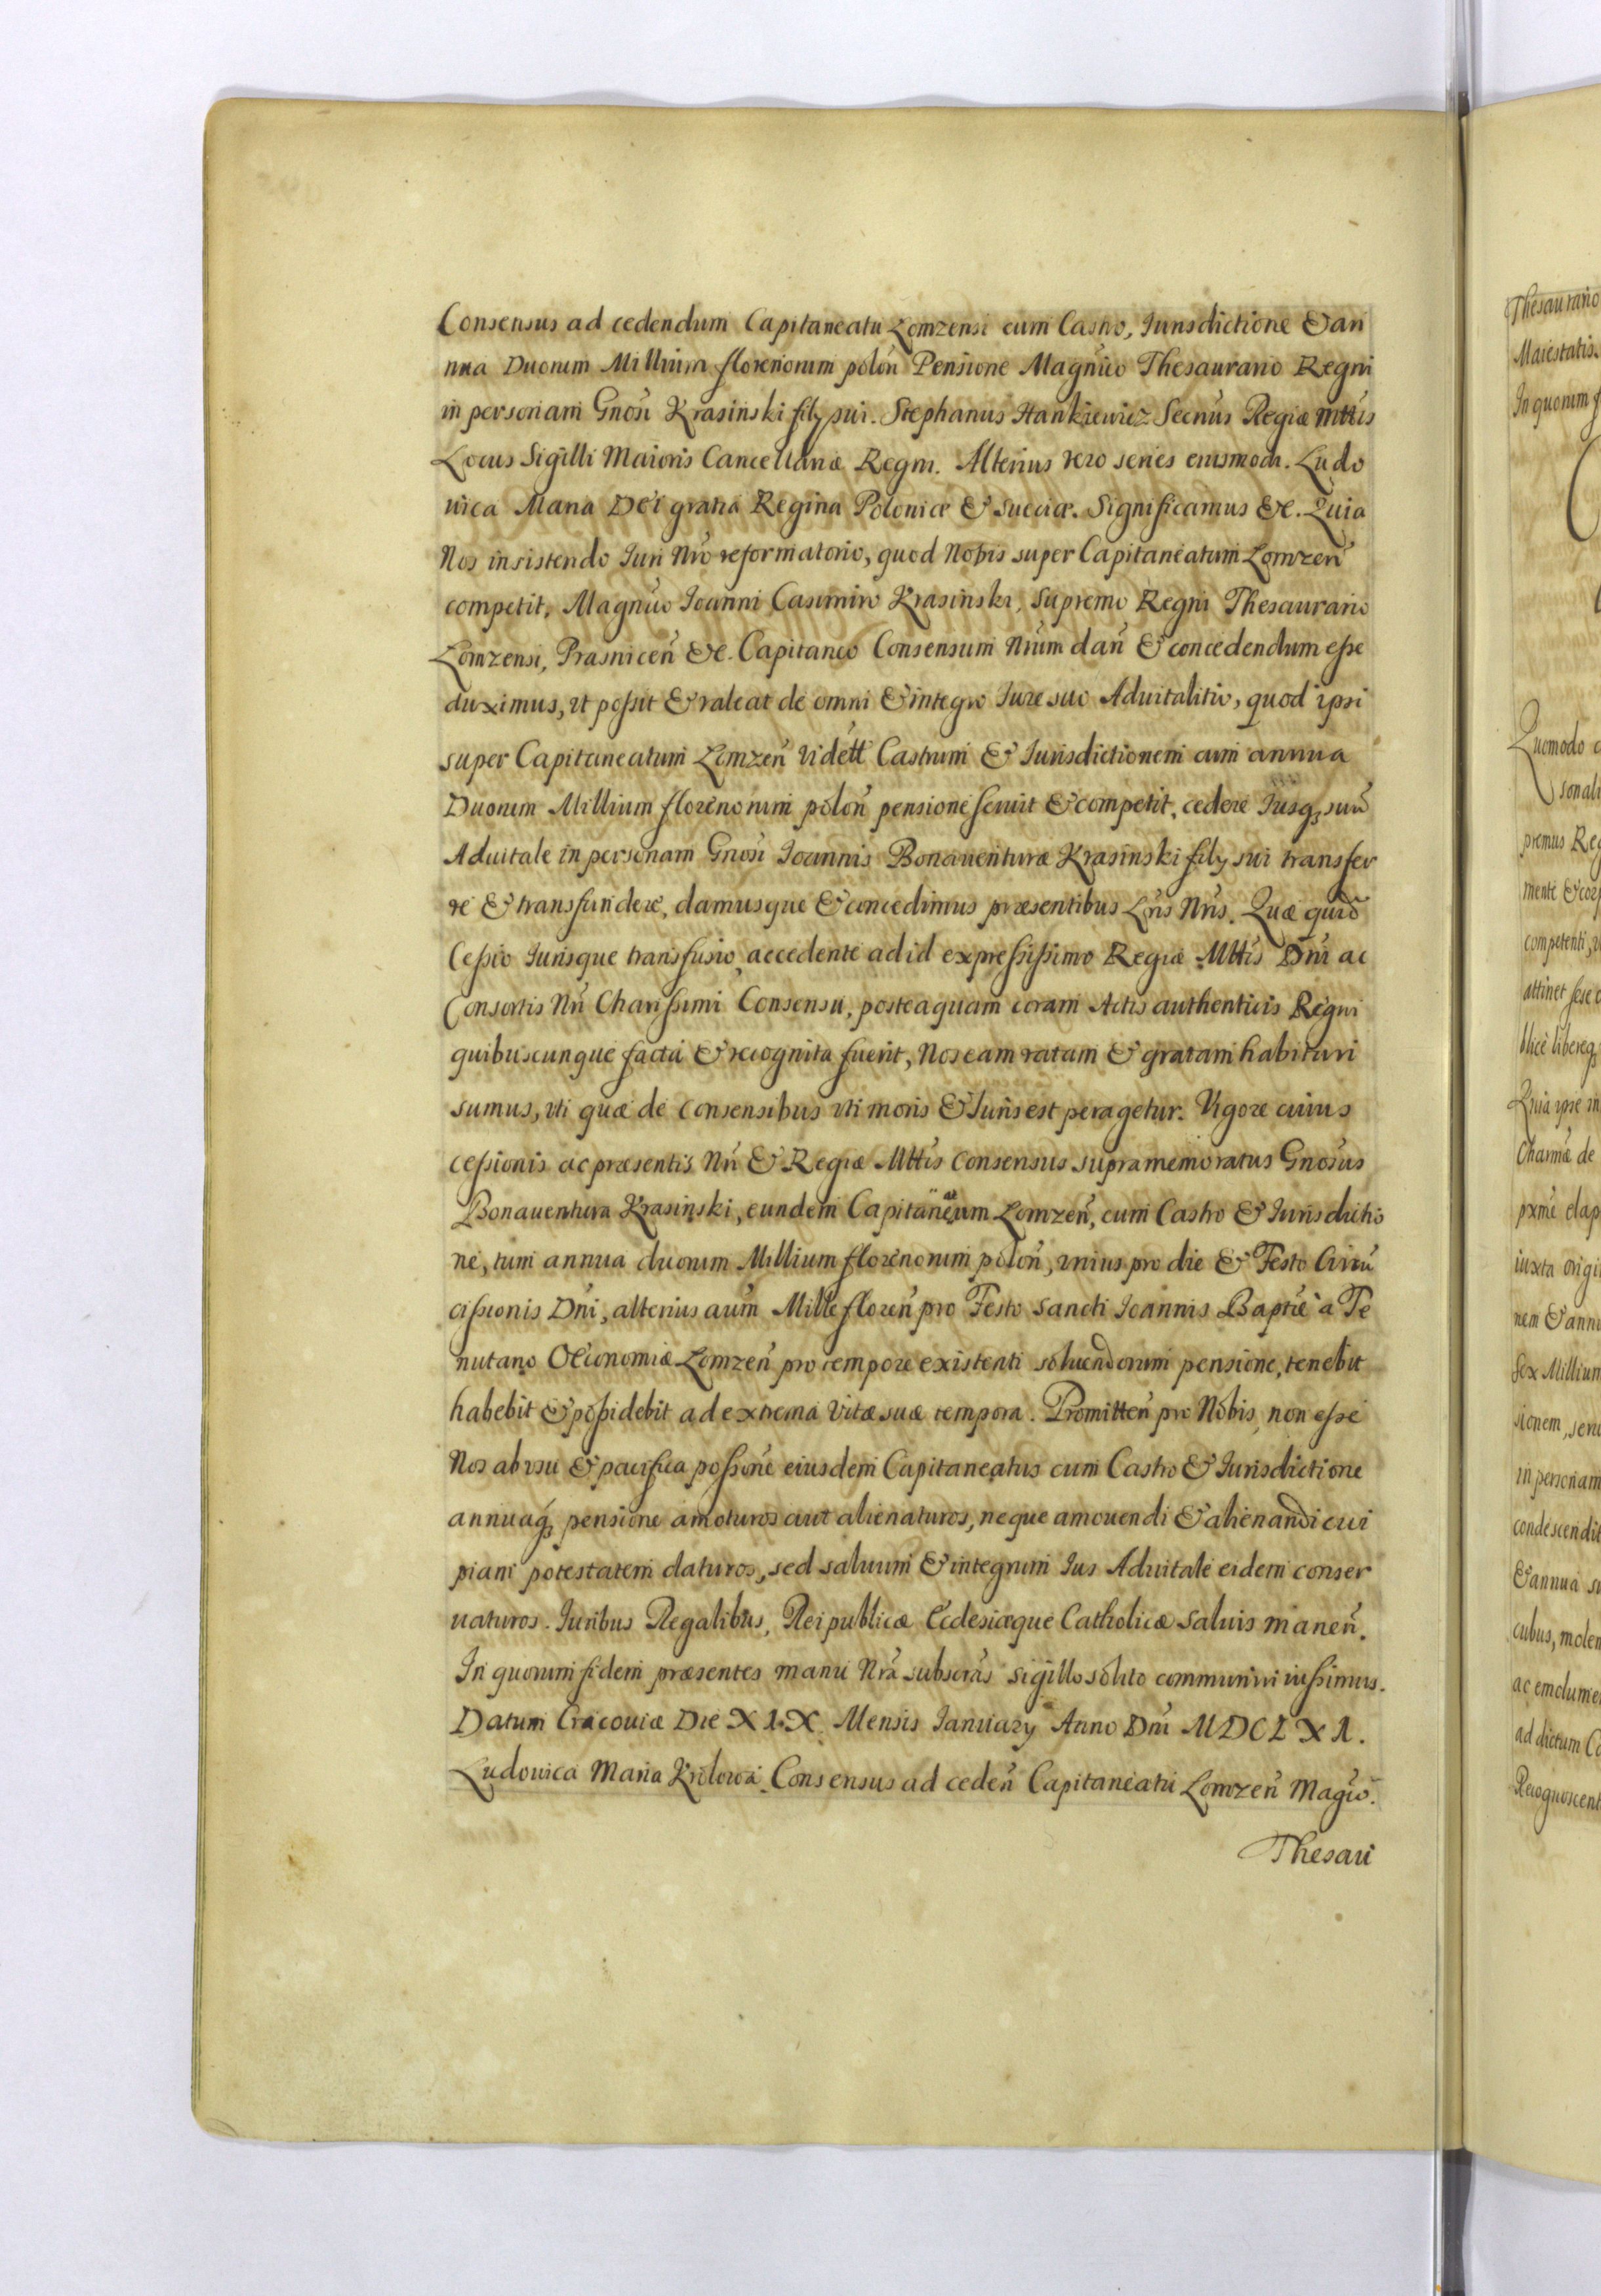 Consensus ad cedendum Capitaneatu Lomzensi cum Castro, Iurisdictione & an
nua Duorum Millium florenorum polon̄ Pensione Magn̄co Thesaurario Regni
in personam Gn̄osi Krasinski filÿ sui. Stephanus Hankiewicz Secrūs Regiæ Mttis
Locus Sigilli Maioris Cancellariæ Regni. Alterius vero series eiusmodi. Ludo
uica Maria Dei gratia Regina Poloniæ & Sueciæ. Significamus &c. Quia
Nos insistendo Iuri Nr̄o reformatorio, quod Nobis super Capitaneatum Lomzen̄
competit, Magn̄co Ioanni Casimiro Krasinski, Supremo Regni Thesaurario
Lomzensi, Prasnicen̄ &c. Capitaneo Consensum Nr̄um dan̄ & concedendum esse
duximus, vt possit & valeat de omni & integro Iure suo Aduitalitio, quod ipsi
super Capitaneatum Lomzen̄ vidett Castrum & Iurisdictionem cum annua
Duorum Millium florenorum polon̄ pensione seruit & competit, cedere Iusq₃ suū
Aduitale in personam Gn̄osi Ioannis Bonauenturæ Krasinski filÿ sui transfer
re & transfundere, damusque & concedimus præsentibus Lr̄is Nr̄is. Quæ quid̄
Cessio Iurisque transfusio, accedente ad id expressissimo Regiæ Mttis Dn̄i ac
Consortis Nr̄i Charissimi Consensu, posteaquam coram Actis authenticis Regni
quibuscunque facta & recognita fuerit, Nos eam ratam & gratam habituri
sumus, vti quæ de consensibus vti moris & Iuris est peragetur. Vigore cuius
cessionis ac præsentis Nr̄i & Regiæ Mttis consensus supramemoratus Gn̄osus
Bonauentura Krasinski, eundem Capitaneatum Lomzen̄, cum Castro & Iurisdictio
ne, tum annua duorum Millium florenorum polon̄, vnius pro die & Festo Circū
cissionis Dn̄i, alterius aūm Mille floren̄ pro Festo Sancti Ioannis Baptæ à Te
nutario Oeconomiæ Lomzen̄ pro tempore existenti soluendorum pensione, tenebit
habebit & possidebit ad extrema vitæ suæ tempora. Promitten̄ pro Nobis, non esse
Nos ab vsu & pacifica possion̄e eiusdem Capitaneatus cum Castro & Iurisdictione
annuaq₃ pensione amoturos aut alienaturos, neque amouendi & alienandi cui
piam potestatem daturos, sed saluum & integrum Ius Aduitale eidem conser
uaturos. Iuribus Regalibus, Reipublicæ Ecclesiæque Catholicæ saluis manen̄.
In quorum fidem præsentes manu Nr̄a subscrās sigillo solito communiri iussimus.
Datum Cracouiæ Die XIX. Mensis Ianuarÿ Anno Dn̄i MDCLXI.
Ludouica Maria Krolowa. Consensus ad ceden̄ Capitaneatu Lomzen̄ Magn̄co.
Thesau
Thesaurario
Maiestatis.
In quorum f
Quomodo
sonali
premus Reg
mente & corp
competenti,
attinet sese
blicè libereq₃
Quia ipse in
Charmæ de
pxmè elap
iuxta origi
nem & annu
Sex Millium
sionem, seru
in personam
condescendit
& annua su
cubus, molen
ac emolumen
ad dictum Ca
Recognoscent